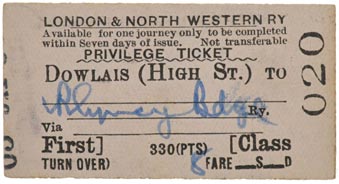 LONDON & NORTH WESTERN RY
Available for one journey only to be completed
within Seven days of issue. Not transferable
PRIVILEGE TICKET
DOWLAIS (HIGH ST.) TO
Rhymney Bdge Ry.
Via
First] 330(PTS) [Class
TURN OVER) 8 FARE S D
020